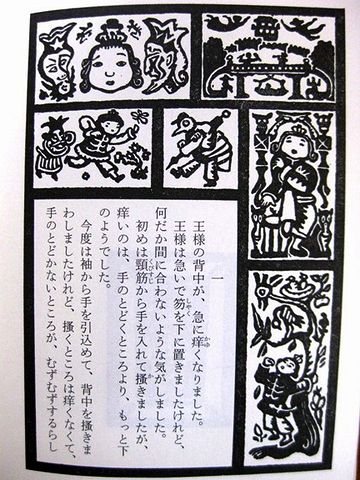 一
王様の背中が、急に痒くなりました。
王様は急いで笏を下に置きましたけれど、
何だか間に合わないような気がしました。
初めは頸筋から手を入れて掻きましたが、
痒いのは、手のとどくところより、もっと下
のようでした。
今度は袖から手を引込めて、背中を掻きま
わしましたけれど、掻くところは痒くなくて、
手のとどかないところが、むずむずするらし